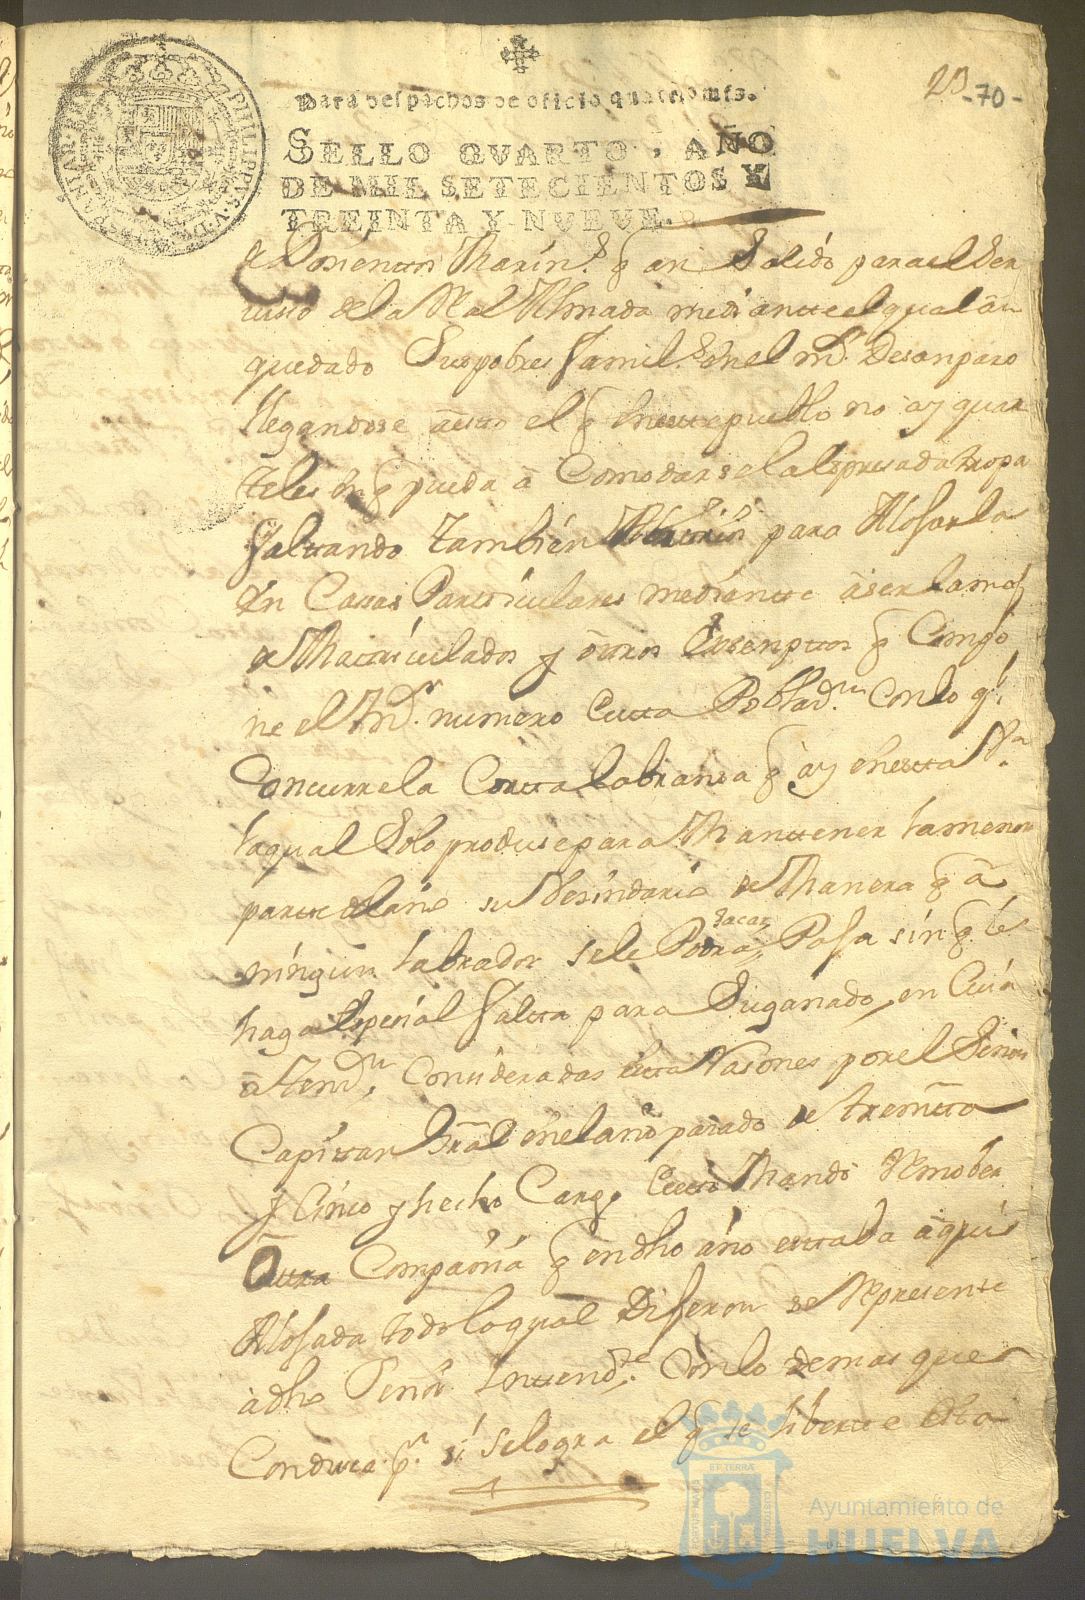 PHILIPPVS V D
Para despachos de oficio quatro mrs.
SELLO QVARTO, AÑO
DE MIL SETECIENTOS Y
TREINTA Y NVEVE.
23 -70-
Marin.s q an Salido para el Ser
uisio de la Real Armada mediante el qual an
quedado Sus pobres famil.s en el m.r Desanparo
llegandose a esto el q en este pueblo no ay quar
teles en q pueda a Comodarse la espresada tropa
faltando tambien para Alojarla
en Casas Particulares mediante a ser la maj
Matriculados y otros Exsemptos q Compo
ne el m.r numero esta Poblas.n Con lo q.l
Concurre la Corta labransa q ay en esta V.a
la qual Solo produse para Mantener la menor
parte del año su Besindario de Manera q a
ningun labrador se le Podra sacar Paja sin q le
haga espesial falta para Su ganado, en Cuia
atens.n Consideradas estas Rasones por el Señor
Capitan Gral en el año pasado de treinta
y Cinco y hecho Cargo Mando Remober
Otra Compañia q en dho año estaba aqui
Alojada todo lo qual Dijeron se Represente
a dho Señor Intend.te Con lo demas que
Condusca p.a si se logra el q se liberte esta
ET TERRÆ
PORTUS MARIS
CUSTODIA
Ayuntamiento de
HUELVA